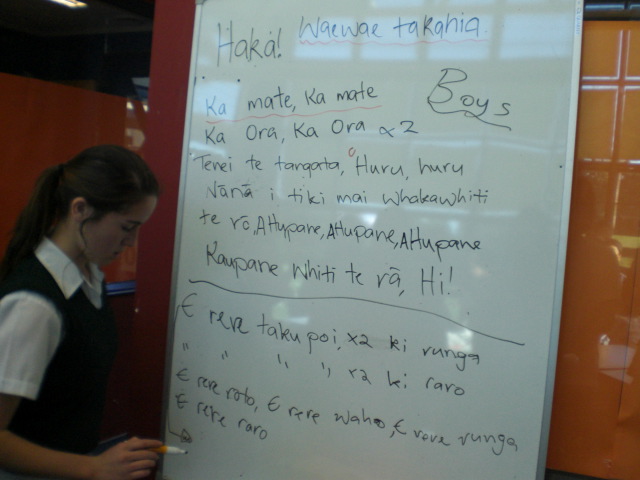 Haka! Waewae takahia.
Boys
Ka mate, Ka mate
Ka Ora, Ka Ora x2
Tenei te tangata, Huru, huru
Nānā i tiki mai whakawhiti
te rō, AHupane, AHupane, AHupane
Kaupane Whiti te rā, Hi!
E rere taku poi, x2 ki runga
" " " " x2 ki raro
E rere roto, E rere waho, E rere runga
E rere raro